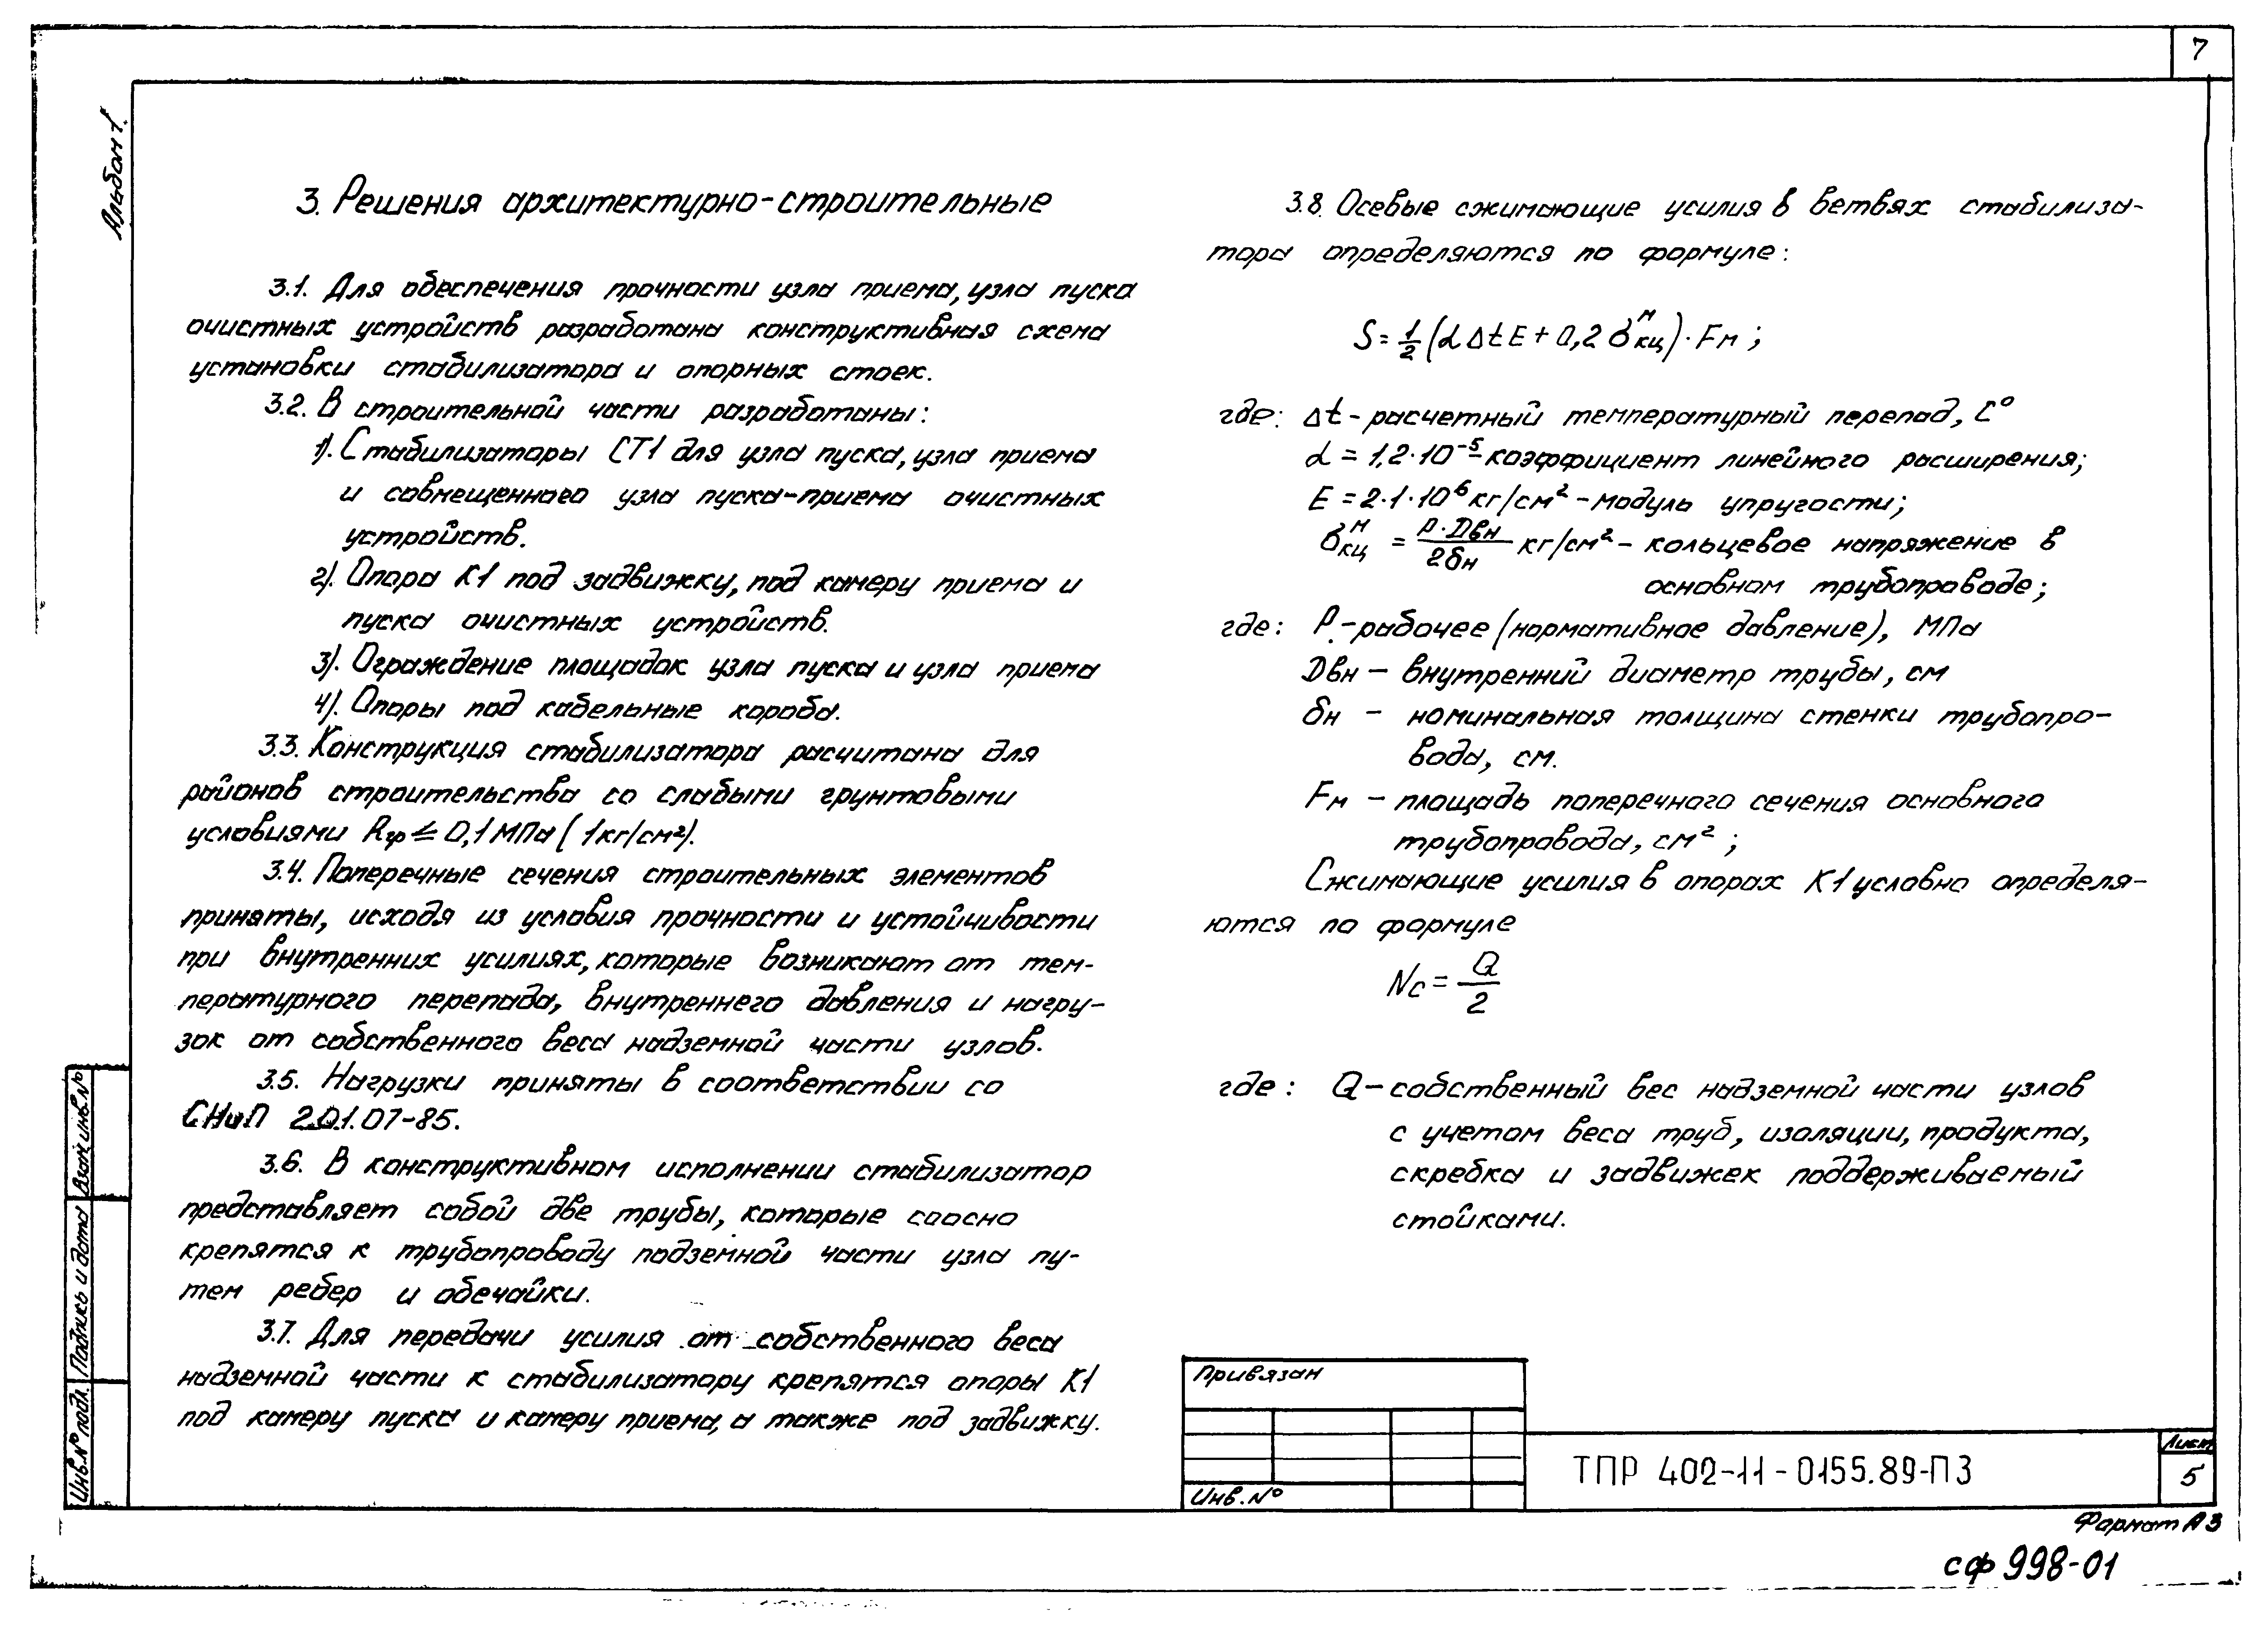 7
Альбом 1.
3. Решения архитектурно-строительные
3.1. Для обеспечения прочности узла приема, узла пуска
очистных устройств разработана конструктивная схема
установки стабилизатора и опорных стоек.
3.2. В строительной части разработаны:
1). Стабилизаторы СТ1 для узла пуска, узла приема
и совмещенного узла пуска-приема очистных
устройств.
2). Опора К1 под задвижку, под камеру приема и
пуска очистных устройств.
3). Ограждение площадок узла пуска и узла приема
4). Опоры под кабельные короба.
3.3. Конструкция стабилизатора расчитана для
районов строительства со слабыми грунтовыми
условиями Rгр ≤ 0,1 МПа (1кг/см²).
3.4. Поперечные сечения строительных элементов
приняты, исходя из условия прочности и устойчивости
при внутренних усилиях, которые возникают от тем-
пературного перепада, внутреннего давления и нагру-
зок от собственного веса надземной части узлов.
3.5. Нагрузки приняты в соответствии со
СНиП 2.01.07-85.
3.6. В конструктивном исполнении стабилизатор
представляет собой две трубы, которые соосно
крепятся к трубопроводу подземной части узла пу-
тем ребер и обечайки.
3.7. Для передачи усилия от собственного веса
надземной части к стабилизатору крепятся опоры К1
под камеру пуска и камеру приема, а также под задвижку.
3.8. Осевые сжимающие усилия в ветвях стабилиза-
тора определяются по формуле:
S = 1/2 (α Δt E + 0,2 σ^м_кц) · Fм ;
где: Δt - расчетный температурный перепад, С°
α = 1,2·10⁻⁵ - коэффициент линейного расширения;
E = 2·1·10⁶ кг/см² - модуль упругости;
σ^м_кц = P·Dвн / 2δн кг/см² - кольцевое напряжение в
основном трубопроводе;
где: P - рабочее (нормативное давление), МПа
Dвн - внутренний диаметр трубы, см
δн - номинальная толщина стенки трубопро-
вода, см.
Fм - площадь поперечного сечения основного
трубопровода, см² ;
Сжимающие усилия в опорах К1 условно определя-
ются по формуле
Nc = Q / 2
где: Q - собственный вес надземной части узлов
с учетом веса труб, изоляции, продукта,
скребка и задвижек поддерживаемый
стойками.
Взам. инв. №
Подпись и дата
Инв. № подл.
Привязан
Инв. №
ТПР 402-11-0155.89-ПЗ
Лист
5
Формат А3
сф 998-01